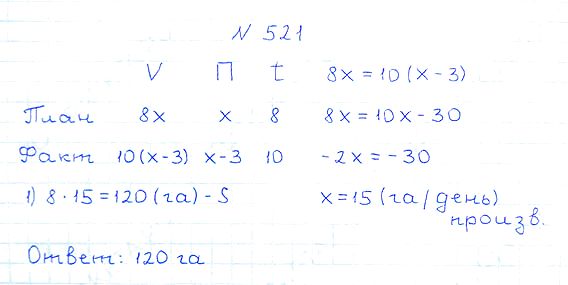 N 521
V П t 8x = 10(x - 3)
План 8x x 8 8x = 10x - 30
Факт 10(x-3) x-3 10 -2x = -30
1) 8 · 15 = 120 (га) - S x = 15 (га/день)
произв.
Ответ: 120 га